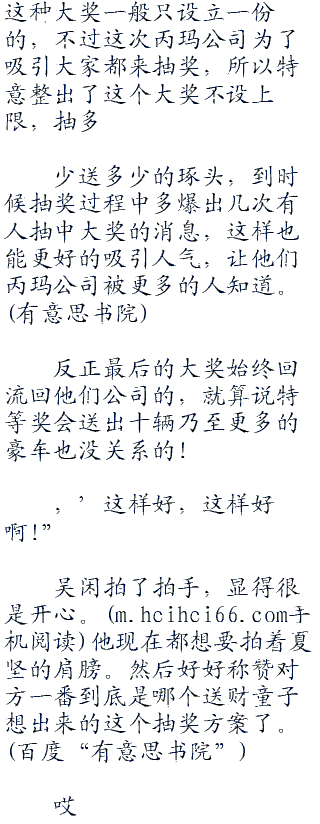 这种大奖一般只设立一份
的，不过这次丙玛公司为了
吸引大家都来抽奖，所以特
意整出了这个大奖不设上
限，抽多
少送多少的琢头，到时
候抽奖过程中多爆出几次有
人抽中大奖的消息，这样也
能更好的吸引人气，让他们
丙玛公司被更多的人知道。
(有意思书院)
反正最后的大奖始终回
流回他们公司的，就算说特
等奖会送出十辆乃至更多的
豪车也没关系的!
，’这样好，这样好
啊!”
吴闲拍了拍手，显得很
是开心。(m.hcihci66.com手
机阅读)他现在都想要拍着夏
坚的肩膀。然后好好称赞对
方一番到底是哪个送财童子
想出来的这个抽奖方案了。
(百度“有意思书院”)
哎